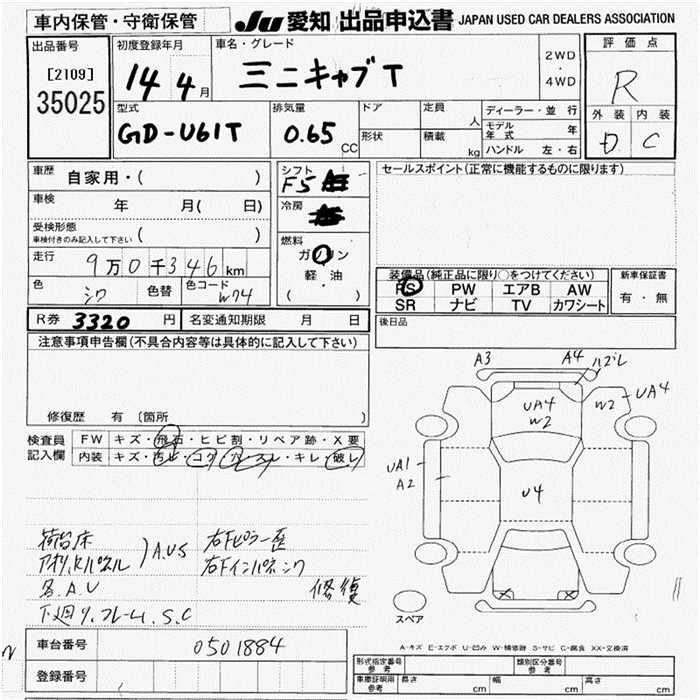 車内保管・守衛保管
JU 愛知 出品申込書 JAPAN USED CAR DEALERS ASSOCIATION
出品番号
[2109]
35025
初度登録年月
14 4月
車名・グレード
ミニキャブT
2WD
・
4WD
評価点
R
外装 内装
D C
型式
GD-U61T
排気量
0.65 CC
ドア
形状
定員
人
積載
kg
ディーラー・並行
モデル年式 年
ハンドル 左・右
車歴 自家用・( )
車検 年 月( 日)
受検形態
車検付きのみ記入して下さい ( )
走行 9万0千346km
色 シロ 色替 色コード W74
シフト
F5
冷房
燃料
ガソリン
軽・油
( ・ )
セールスポイント(正常に機能するものに限ります)
装備品(純正品に限り○をつけてください)
PS PW エアB AW
SR ナビ TV カワシート
新車保証書
有・無
R券 3320 円 名変通知期限 月 日
後日品
注意事項申告欄(不具合内容等は具体的に記入して下さい)
修復歴 有〔箇所 〕
検査員記入欄
FW キズ・飛石・ヒビ割・リペア跡・X要
内装 キズ・汚レ・コゲ・穴・スレ・キレ・破レ
荷台床
アオリ,Kパネル ) A.U.S
各.A.U
下廻り.フレーム.S.C
右Fピラー歪
右Fインパネシワ
修復
A3 A4 ハズレ
UA4
W2
W2 UA4
UA1
A2
U4
スペア
A-キズ E-エクボ U-凹み W-補修跡 S-サビ C-腐食 XX-交換済
車台番号 0501884
登録番号
形式指定番号 参考
類別区分番号 参考
車庫証明用 参考 長さ cm 幅 cm 高さ cm